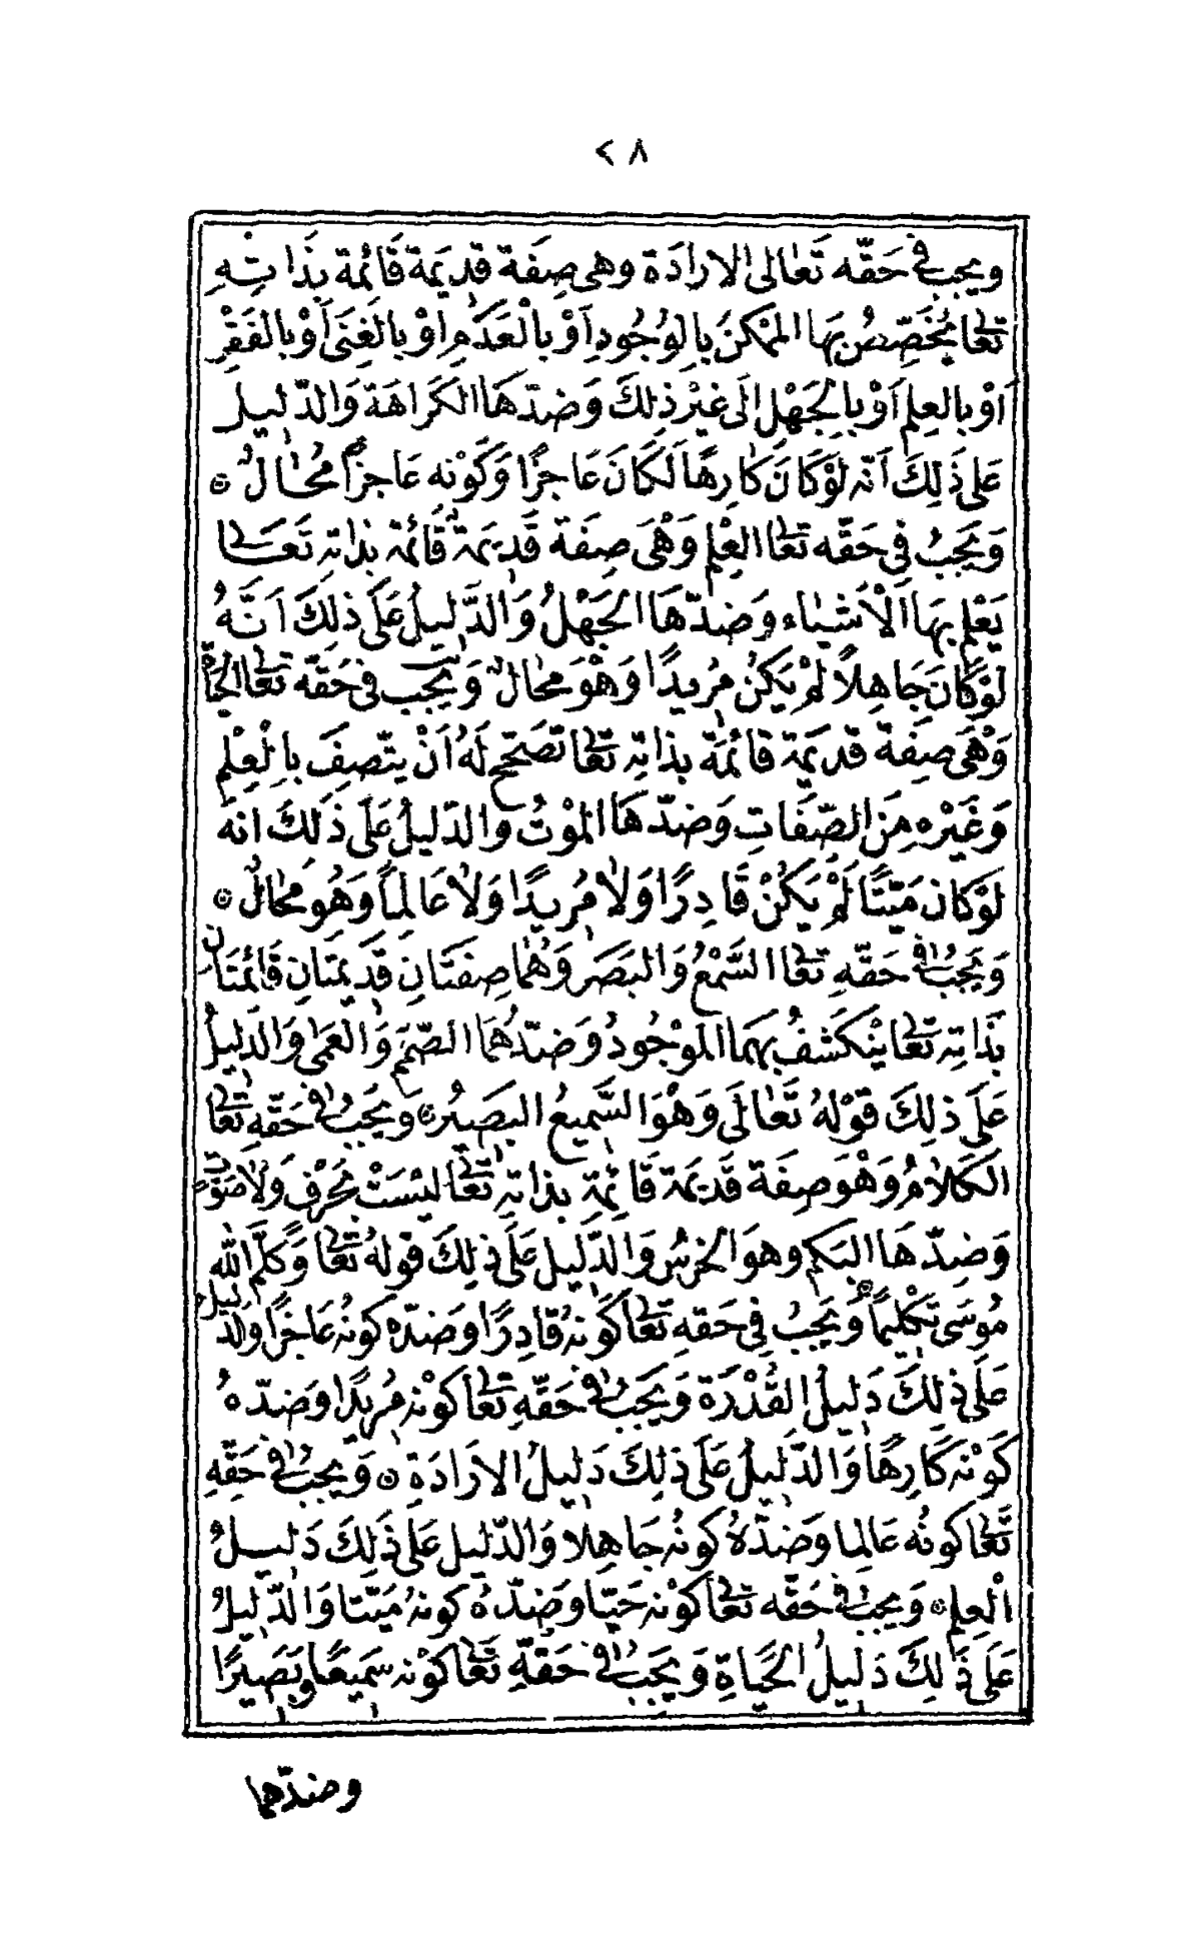 < ٨
ويجب فى حَقّه تَعٰالى الارادَة وهى صِفَة قدِيمَة قَائمة بِذَاتِهِ
تعَالى يُخَصِّصُ بهَا الممْكنَ بِالوُجُودِ اَوْ بالْعَدَمِ اَوْ بالغِنَى اَوْ بالفَقْرِ
اَوْ بالعِلم اَوْ بِالجَهْلِ الَى غيْر ذلِكَ وَضدّهَا الكَرَاهَة وَالدّليل
عَلى ذَلِكَ اَنّه لَوْ كَانَ كَارِهًا لَكَانَ عَاجزًا وَكَوْنه عَاجزاً مُحٰالٌ ۞
وَيَجبُ فِى حَقّه تعَالى العِلْم وَهْىَ صِفَة قَدِيمَةٌ قَائمَة بذاتهِ تَعَالى
يَعْلم بهَا اَلْاَشيٰاء وَضدّهَا الجَهْلُ وَالدَّلِيلُ عَلَى ذلِكَ اَنَّهُ
لَوْ كَانَ جَاهِلًا لَمْ يَكُنْ مُرِيدًا وَهْوَ محٰالٌ وَيَجب فى حَقّه تعَالى الحَيَاةُ
وَهْىَ صِفَة قدِيمَة قائمَة بذاتهِ تعَالى تصَحّح لَهُ اَنْ يتّصِفَ بِالْعِلْمِ
وَغَيْرهِ مِنَ الصّفَاتِ وَضدّهَا الموْتُ وَالدّلِيلُ عَلَى ذَلكَ انهُ
لَوْ كَانَ مَيّتًا لَمْ يَكُنْ قَادِرًا وَلاٰ مُرِيدًا وَلاٰ عَالِماً وَهُو مُحٰالٌ ۞
وَيَجبُ فى حَقّهِ تعَالى السَّمْعُ وَالبَصَر وَهُمَا صِفَتَانِ قَدِيمَتَانِ قَائمتَانِ
بذَاتهِ تعَالى يَنْكَشفُ بهمَا الموْجُودُ وَضدّهُمَا الصّمَم وَالعَمٰى وَالدَلِيلُ
عَلَى ذلِكَ قَوْلهُ تَعَالَى وَهْوَ السَّمِيعُ البَصِيرُ ۞ وَيجَبُ فى حَقّهِ تعَالى
الكَلاٰمُ وَهْوَ صِفَة قَدِيمَة قَائِمَة بذاتهِ تعَالى ليْسَتْ بحَرْفٍ وَلاٰ صَوْتٍ
وَضِدّهَا البَكم وهوَ الخرَسُ وَالدَّلِيل عَلَى ذلِكَ قولهُ تعَالى وَكَلَّمَ اللّٰه
مُوسَى تَكْلِيمًا ۞ وَيَجبُ فِى حَقهِ تعَالى كَونهُ قادِرًا وَضدّه كونهُ عَاجزًا وَالدَليل
عَلَى ذلِكَ دَلِيلُ القُدْرَة وَيَجَبُ فى حَقّهِ تعَالى كَوْنه مُرِيدًا وَضدّهُ
كَوْنه كَارِهًا وَالدَّلِيلُ عَلَى ذلِكَ دَلِيلُ الارَادَةِ ۞ وَيجبُ فى حَقّهِ
تعَالى كونُه عَالِما وَضدّهُ كونُه جَاهِلًا وَالدّلِيل عَلَى ذَلِكَ دَلِيلُ
الْعِلم ۞ وَيجبُ فى حَقّه تعَالى كَوْنه حَيّا وَضدّهُ كونهُ مَيّتا وَالدّلِيلُ
عَلَى ذَالِكَ دَلِيلُ الحَيَاةِ وَيَجَبُ فى حَقّهِ تَعَالى كَوْنه سَمِيعًا وبَصِيرًا
وضدّهما